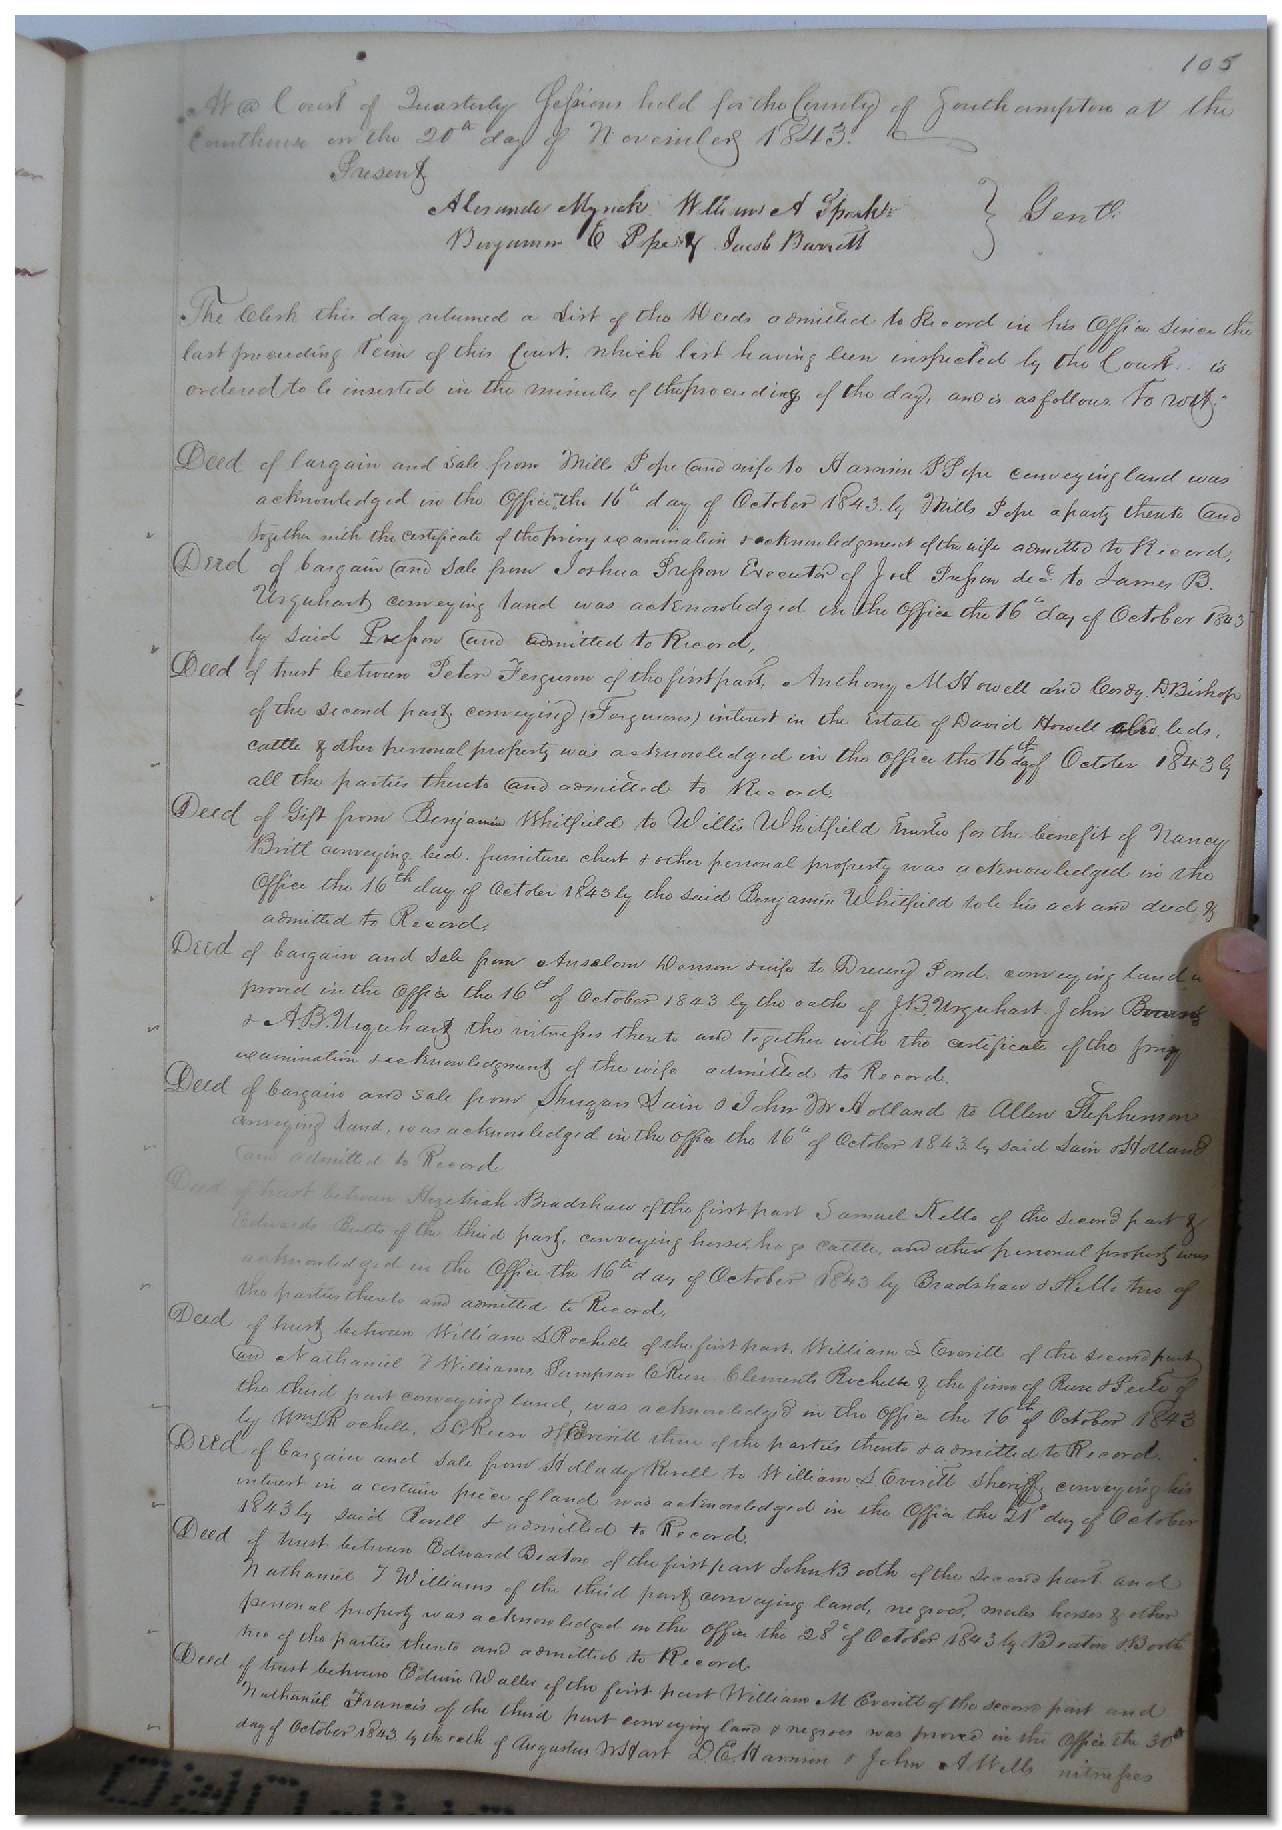 105
At a Court of Quarterly Sessions held for the County of Southampton at the
Courthouse on the 20th day of November 1843.
Present
Alexander Myrick William A Spark
Benjamin E Pope & Jacob Barrett } Gent.
The Clerk this day returned a List of the Deeds admitted to Record in his Office since the
last preceeding Term of this Court. which list having been inspected by the Court. is
ordered to be inserted in the minutes of the proceedings of the day, and is as follows To wit;
Deed of bargain and sale from Mills Pope and wife to Harrison P Pope conveying land was
acknowledged in the Office the 16th day of October 1843. by Mills Pope a party thereto and
together with the certificate of the privy examination & acknowledgment of the wife admitted to Record,
Deed of bargain and sale from Joshua Presson Executor of Joel Presson decd. to James B.
Urquhart conveying land was acknowledged in the Office the 16th day of October 1843
by said Presson and admitted to Record,
Deed of trust between Peter Ferguson of the first part, Anthony M Howell and Cordy D Bishop
of the second part conveying (Fergusons) interest in the Estate of David Howell also beds,
cattle & other personal property was acknowledged in the Office the 16th day of October 1843 by
all the parties thereto and admitted to Record.
Deed of Gift from Benjamin Whitfield to Willis Whitfield Trustee for the benefit of Nancy
Britt conveying bed. furniture chest & other personal property was acknowledged in the
Office the 16th day of October 1843 by the said Benjamin Whitfield to be his act and deed, &
admitted to Record,
Deed of bargain and sale from Anselom & wife to Drewry Pond. conveying land
proved in the Office the 16th of October 1843 by the oath of J.B. Urquhart John
& A.B. Urquhart the witnesses thereto and together with the certificate of the privy
examination & acknowledgment of the wife admitted to Record.
Deed of bargain and sale from Lain & John M Holland to Allen Stephenson
conveying land, was acknowledged in the Office the 16th of October 1843. by said Lain & Holland
and admitted to Record
Deed of trust between Hezekiah Bradshaw of the first part Samuel Kello of the second part &
Edwards Butts of the third part, conveying horse, hogs cattle, and other personal property was
acknowledged in the Office the 16th day of October 1843 by Bradshaw & Kello two of
the parties thereto and admitted to Record,
Deed of trust between William S Rochelle of the first part, William S Everitt of the second part
and Nathaniel T Williams, Sampson C Reese Clements Rochelle & the firm of Reese & of
the third part conveying land, was acknowledged in the Office the 16th of October 1843
by Wm S Rochelle, S C Reese & Everitt three of the parties thereto & admitted to Record.
Deed of bargain and sale from Holladay Revell to William S Everitt Sheriff, conveying his
interest in a certain piece of land was acknowledged in the Office the 21st day of October
1843 by said Revell & admitted to Record.
Deed of trust between Edward Beaton of the first part John Booth of the second part and
Nathaniel T Williams of the third part conveying land, negroes, mules horses & other
personal property was acknowledged in the Office the 28th of October 1843 by Beaton & Booth
two of the parties thereto and admitted to Record
Deed of trust between Edwin Waller of the first part William M Everitt of the second part and
Nathaniel Francis of the third part conveying land & negroes was proved in the Office the 30th
day of October 1843. by the oath of Augustus W Hart D.E. Harrison & John A Wells witnesses